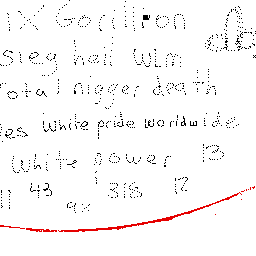 1X Gorillion
sieg heil wlm
total nigger death
yes white pride worldwide
white power 13
11 43 9x 318 12